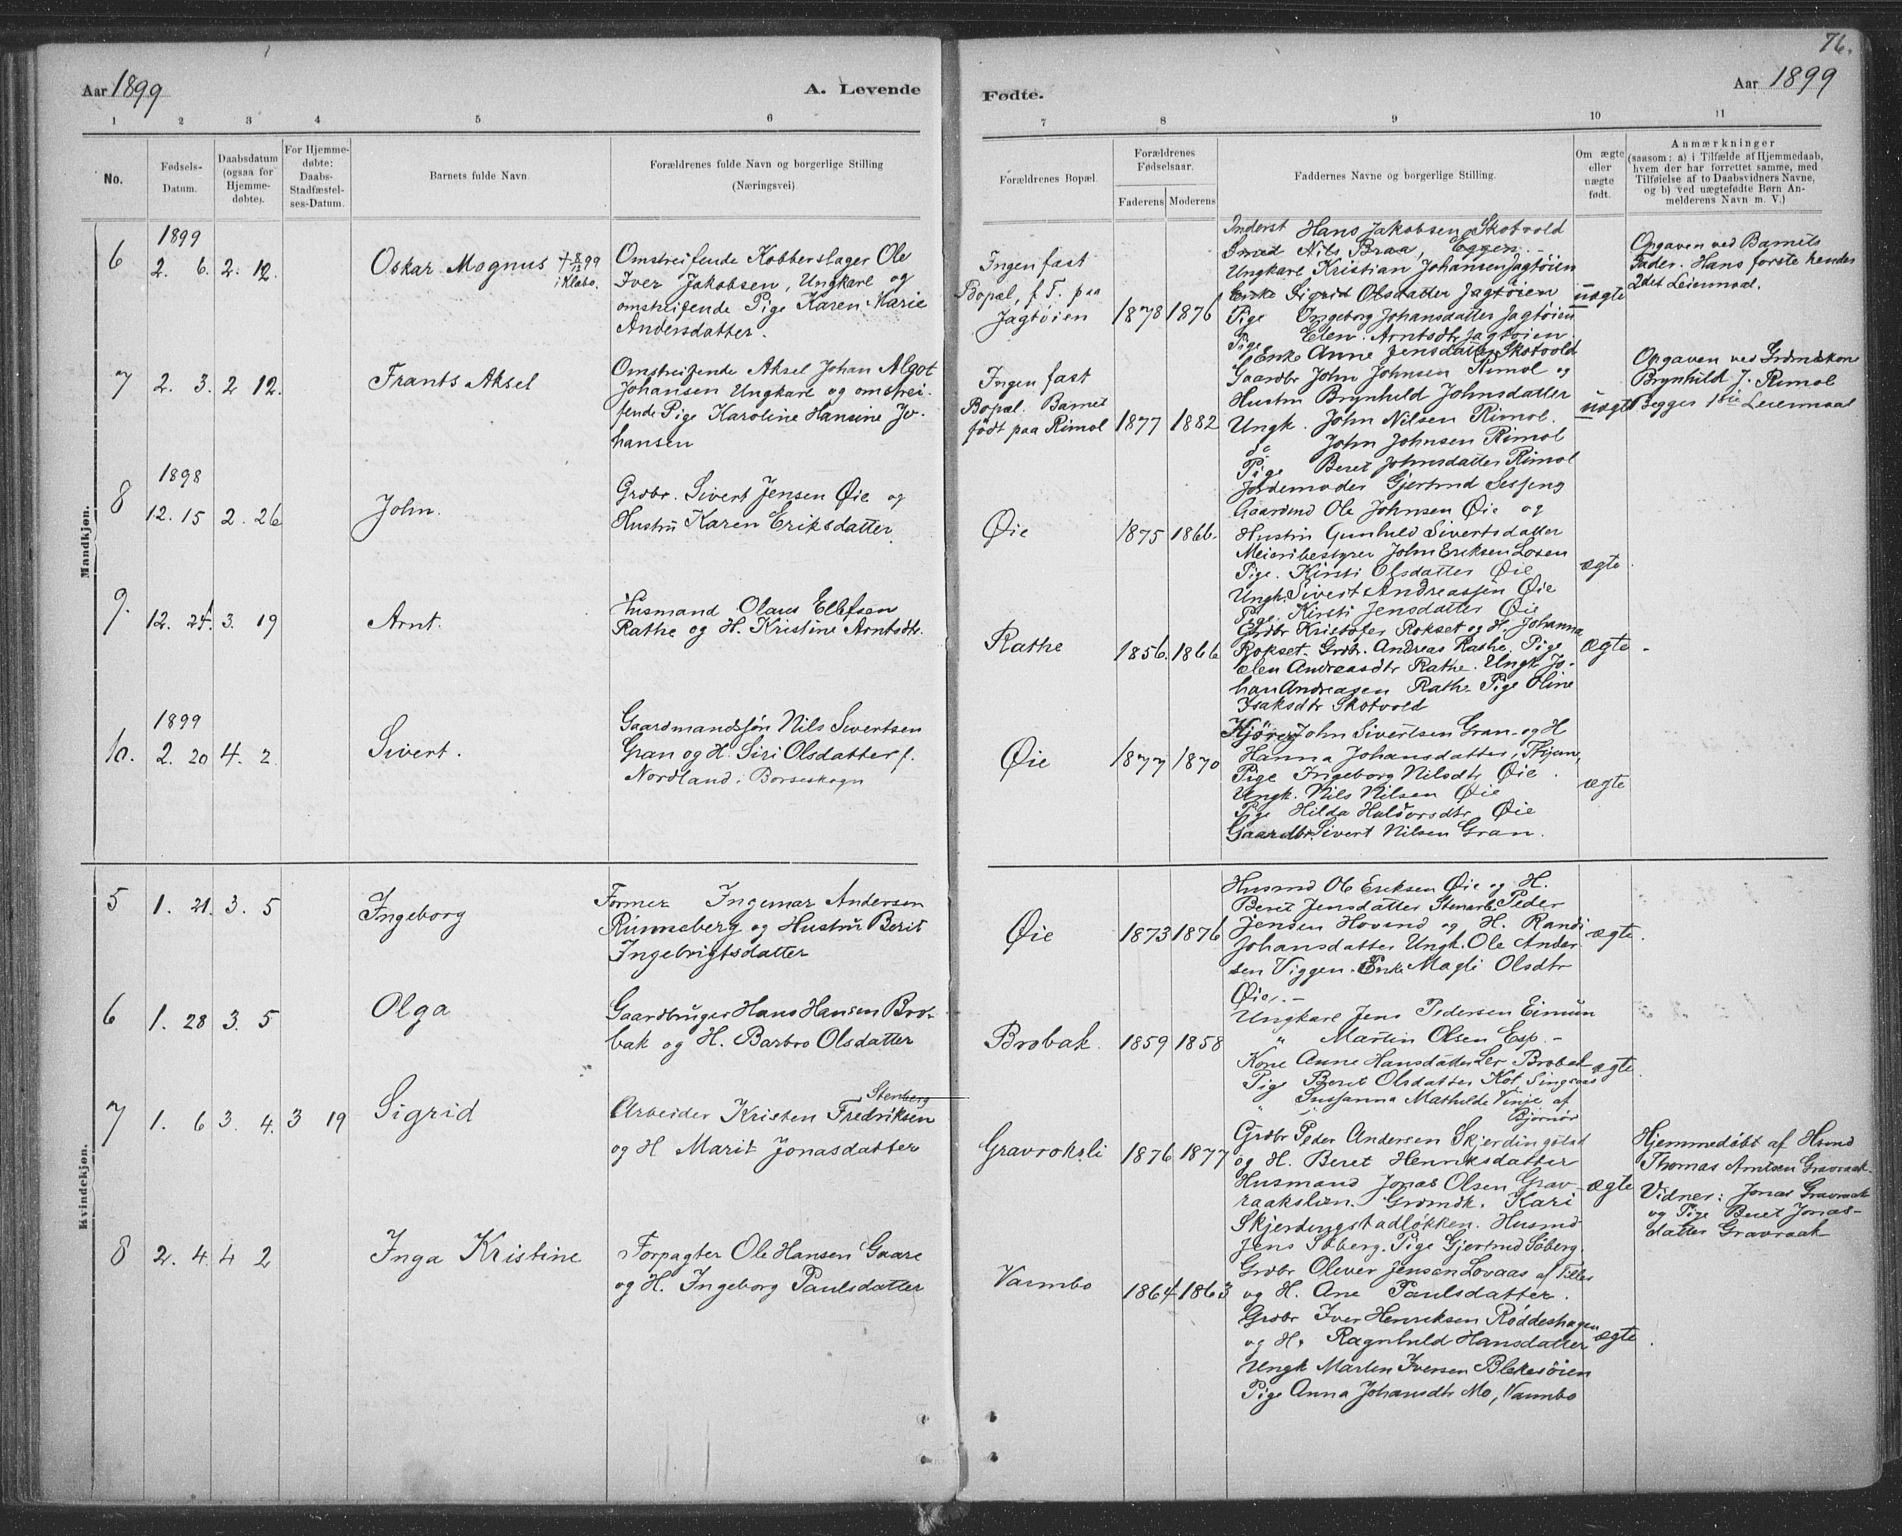 76.
Aar 1899
A. Levende
Fødte.
Aar 1899
1
2
3
4
5
6
7
8
9
10
11
No.
Fødsels-
Datum.
Daabsdatum
(ogsaa for
Hjemme-
døbte).
For Hjemme-
døbte:
Daabs-
Stadfæstel-
ses-Datum.
Barnets fulde Navn.
Forældrenes fulde Navn og borgerlige Stilling
(Næringsvei).
Forældrenes Bopæl.
Forældrenes
Fødselsaar.
Faderens
Moderens
Faddernes Navne og borgerlige Stilling.
Om ægte
eller
uægte
født.
Anmærkninger
(saasom: a) i Tilfælde af Hjemmedaab,
hvem der har forrettet samme, med
Tilføielse af to Daabsvidners Navne,
og b) ved uægtefødte Børn An-
melderens Navn m. V.)
Mandkjøn.
1899
6
2. 6.
2. 12.
Oskar Magnus
+ 8/12 99
i Klæbo.
Omstreifende Kobberslager Ole
Iver Jakobsen, Ungkarl og
omstreifende Pige Karen Marie
Andersdatter.
Ingen fast
Bopæl, f. T. paa
Jagtøien
1878
1876
Inderst Hans Jakobsen Skotvold
Smed Nils Braa, Eggen.
Ungkarl Kristian Johansen Jagtøien
Enke Sigrid Olsdatter Jagtøien
Pige Ingeborg Johansdatter Jagtøien
Pige Elen Arntsdtr Jagtøien
uægte
Opgaven ved Barnets
Fader. Hans første hendes
2det Leiermaal.
7
2. 3.
2 12.
Frants Aksel
Omstreifende Aksel Johan Algot
Johansen Ungkarl og omstrei-
fende Pige Karoline Hansine Jo-
hansen
Ingen fast
Bopæl. Barnet
født paa Rimol
1877
1882
Enke Anne Jensdatter Skotvold
Gaardbr John Johnsen Rimol og
Hustru Brynhild Johnsdatter
Ungk. John Nilsen Rimol.
do John Johnsen Rimol
Pige Beret Johnsdatter Rimol
uægte
Opgaven ved Grdmdskone
Brynhild J. Rimol
Begges 1ste Leiermaal
1898
8
12. 15
2. 26
John.
Grdbr. Sivert Jensen Øie og
Hustru Karen Eriksdatter.
Øie
1875
1866.
Jordemoder Gjertrud
Gaardmd Ole Johnsen Øie og
Hustru Gunhild Sivertsdatter
Meieribestyrer John Eriksen Losen
Pige. Kirsti Olsdatter Øie
Ungk. Sivert Andreassen Øie
Pige. Kirsti Jensdatter Øie
ægte
9.
12. 24.
3. 19
Arnt.
Husmand Olaus Ellefsen
Rathe og H. Kristine Arntsdtr.
Rathe
1856.
1866
Grdbr Kristofer Rokset og H. Johanna
Rokset. Grdbr. Andreas Rathe, Pige
Elen Andreasdtr Rathe. Ungk. Jo-
han Andreasen Rathe Pige Oline
Isaksdtr Skotvold
ægte
1899
10.
2. 20
4. 2
Sivert.
Gaardmandssøn Nils Sivertsen
Gran og H. Siri Olsdatter f.
Nordland i Børseskogn
Øie
1877
1870
John Sivertsen Gran og H
Hanna Johansdatter,
Pige Ingeborg Nilsdtr Øie
Ungk. Nils Nilsen Øie
Pige Hilda Halvorsdtr Øie
Gaardbr. Sivert Nilsen Gran.
ægte
Kvindekjøn.
5
1. 21.
3. 5
Ingeborg
Former Ingemar Andersen
Rinneberg og Hustru Berit
Ingebrigtsdatter
Øie
1873
1876
Husmd Ole Eriksen Øie og H.
Beret Jensdatter Stenarb. Peder
Jensen Hovind og H. Randi
Johansdatter Ungk. Ole Ander
sen Viggen. Enke Magli Olsdtr
Øie.
ægte.
6
1. 28
3. 5
Olga
Gaardbruger Hans Hansen Bro-
bak og H. Barbro Olsdatter
Brobak.
1859
1858
Ungkarl Jens Pedersen Eimun
" Martin Olsen Esp.
Kone Anne Hansdatter Ler Brobak
Pige Beret Olsdatter Kot. Singsaas
" Sussanna Mathilde Vinje af
Bjørnør
ægte.
7
1. 6
3. 4.
3 19
Sigrid
Stenberg
Arbeider Kristen Fredriksen
og H Marit Jonasdatter
Gravroksli
1876
1877
Grdbr Peder Andersen Skjerdingstad
og H. Beret Henriksdatter
Husmand Jonas Olsen Grav-
raakslien. Grdmdk. Kari
Skjerdingstadløkken. Husmd
Jens Søberg. Pige Gjertrud Søberg.
ægte
Hjemmedøbt af Husmd
Thomas Arntsen Gravraak
Vidner: Jonas Gravraak
og Pige Beret Jonas-
datter Gravraak
8
2. 4.
4 2
Inga Kristine
Forpagter Ole Hansen Gaare
og H. Ingeborg Paulsdatter
Varmbo
1864
1863
Grdbr Oliver Jensen Lovaas af Tiller
og H. Ane Paulsdatter.
Grdbr Iver Henriksen Røddeshagen
og H. Ragnhild Hansdatter
Ungk Martin Iversen Blekesøien
Pige Anna Johansdtr Mo, Varmbo
ægte.